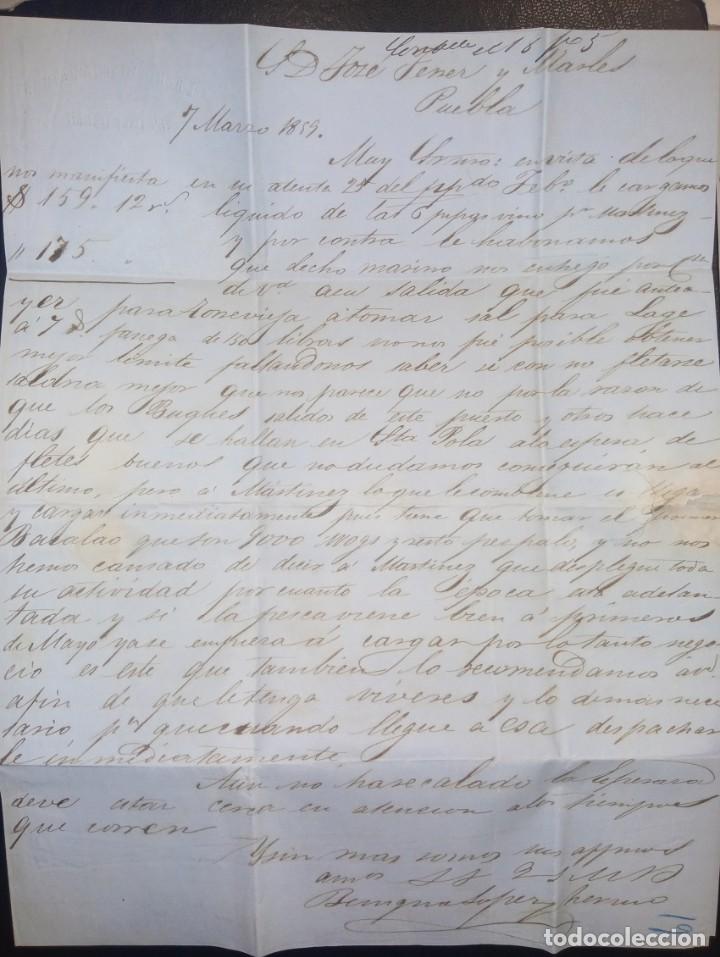 el 16
S D José Ferrer y Marles
Puebla
7 Marzo 1859.
Muy Sr nro: en vista de lo que
nos manifiesta en su atenta 24 del ppdo Febo. le cargamos
$ 159. 12 rs. liquido de las 6 pipas vino pr Martinez
" 175. " y por contra le habonamos
que dicho marino nos entrego por cta
de Vd a su salida que fué antea
yer para Torrevieja a tomar sal para Lage
á 7 fanega de 150 libras no nos fué posible obtener
mejor limite faltandonos saber si con no fletarse
saldria mejor que nos parece que no por la razon de
que los Buques salidos de este puerto y otros hace
dias que se hallan en Sta Pola a la espera de
fletes buenos que no dudamos conseguiran al
ultimo, pero á Martinez lo que le combiene es llega
y cargar inmediatamente pues tiene que tomar el
Bacalao que son 9000 wogs y resto pespali, y no nos
hemos cansado de decir á Martinez que desplegue toda
su actividad por cuanto la época está adelan
tada y si la pesca viene bien á primeros
de Mayo ya se empieza á cargar por lo tanto nego
cio es este que tambien lo recomendamos á Vd.
afin de que le tenga viveres y lo demas nece
sario pa que cuando llegue a esa despachar
le inmediatamente.
Aun no ha recalado la Esperanza
deve estar cerca en atencion a los tiempos
que corren
Y sin mas somos sus appmos
amos S S Q S M B
Benigno Lopez y hermo
todocoleccion
todocoleccion.net